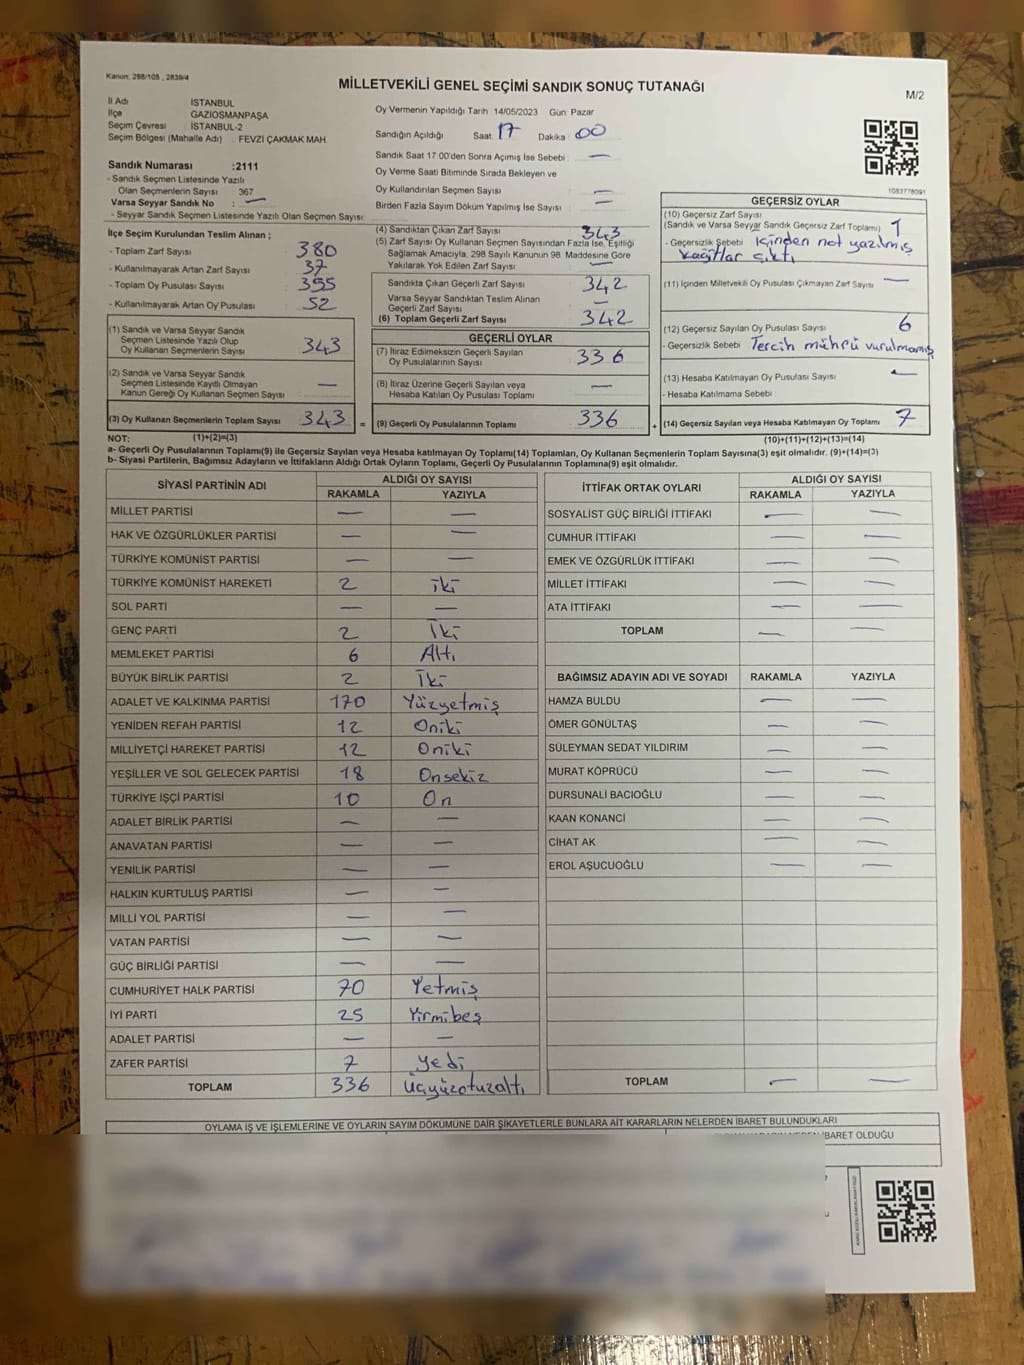 Kanun: 298/105 , 2839/4
MİLLETVEKİLİ GENEL SEÇİMİ SANDIK SONUÇ TUTANAĞI
M/2
İl Adı İSTANBUL
İlçe GAZİOSMANPAŞA
Seçim Çevresi : İSTANBUL-2
Seçim Bölgesi (Mahalle Adı) : FEVZİ ÇAKMAK MAH
Sandık Numarası :2111
- Sandık Seçmen Listesinde Yazılı
Olan Seçmenlerin Sayısı : 367
Varsa Seyyar Sandık No : —
- Seyyar Sandık Seçmen Listesinde Yazılı Olan Seçmen Sayısı:
Oy Vermenin Yapıldığı Tarih 14/05/2023 Gün Pazar
Sandığın Açıldığı Saat 17 Dakika : 00
Sandık Saat 17:00'den Sonra Açımış İse Sebebi : —
Oy Verme Saati Bitiminde Sırada Bekleyen ve
Oy Kullandırılan Seçmen Sayısı : —
Birden Fazla Sayım Döküm Yapılmış İse Sayısı : —
1083778091
İlçe Seçim Kurulundan Teslim Alınan ;
- Toplam Zarf Sayısı : 380
- Kullanılmayarak Artan Zarf Sayısı : 37
- Toplam Oy Pusulası Sayısı : 395
- Kullanılmayarak Artan Oy Pusulası : 52
(1) Sandık ve Varsa Seyyar Sandık
Seçmen Listesinde Yazılı Olup
Oy Kullanan Seçmenlerin Sayısı : 343
(2) Sandık ve Varsa Seyyar Sandık
Seçmen Listesinde Kayıtlı Olmayan
Kanun Gereği Oy Kullanan Seçmen Sayısı : —
(3) Oy Kullanan Seçmenlerin Toplam Sayısı : 343 =
(4) Sandıktan Çıkan Zarf Sayısı : 343
(5) Zarf Sayısı Oy Kullanan Seçmen Sayısından Fazla İse, Eşitliği
Sağlamak Amacıyla, 298 Sayılı Kanunun 98. Maddesine Göre
Yakılarak Yok Edilen Zarf Sayısı : —
Sandıkta Çıkan Geçerli Zarf Sayısı : 342
Varsa Seyyar Sandıktan Teslim Alınan
Geçerli Zarf Sayısı : —
(6) Toplam Geçerli Zarf Sayısı : 342
GEÇERLİ OYLAR
(7) İtiraz Edilmeksizin Geçerli Sayılan
Oy Pusulalarının Sayısı : 336
(8) İtiraz Üzerine Geçerli Sayılan veya
Hesaba Katılan Oy Pusulası Toplamı : —
(9) Geçerli Oy Pusulalarının Toplamı : 336 +
GEÇERSİZ OYLAR
(10) Geçersiz Zarf Sayısı
(Sandık ve Varsa Seyyar Sandık Geçersiz Zarf Toplamı) : 1
- Geçersizlik Sebebi : İçinden not yazılmış
kağıtlar çıktı
(11) İçinden Milletvekili Oy Pusulası Çıkmayan Zarf Sayısı : —
(12) Geçersiz Sayılan Oy Pusulası Sayısı : 6
- Geçersizlik Sebebi : Tercih mührü vurulmamış
(13) Hesaba Katılmayan Oy Pusulası Sayısı : —
- Hesaba Katılmama Sebebi :
(14) Geçersiz Sayılan veya Hesaba Katılmayan Oy Toplamı : 7
NOT: (1)+(2)=(3) (10)+(11)+(12)+(13)=(14)
a- Geçerli Oy Pusulalarının Toplamı(9) ile Geçersiz Sayılan veya Hesaba Katılmayan Oy Toplamı(14) Toplamları, Oy Kullanan Seçmenlerin Toplam Sayısına(3) eşit olmalıdır. (9)+(14)=(3)
b- Siyasi Partilerin, Bağımsız Adayların ve İttifakların Aldığı Ortak Oyların Toplamı, Geçerli Oy Pusulalarının Toplamına(9) eşit olmalıdır.
SİYASİ PARTİNİN ADI ALDIĞI OY SAYISI
RAKAMLA YAZIYLA
MİLLET PARTİSİ — —
HAK VE ÖZGÜRLÜKLER PARTİSİ — —
TÜRKİYE KOMÜNİST PARTİSİ — —
TÜRKİYE KOMÜNİST HAREKETİ 2 İki
SOL PARTİ — —
GENÇ PARTİ 2 İki
MEMLEKET PARTİSİ 6 Altı
BÜYÜK BİRLİK PARTİSİ 2 İki
ADALET VE KALKINMA PARTİSİ 170 Yüzyetmiş
YENİDEN REFAH PARTİSİ 12 Oniki
MİLLİYETÇİ HAREKET PARTİSİ 12 Oniki
YEŞİLLER VE SOL GELECEK PARTİSİ 18 Onsekiz
TÜRKİYE İŞÇİ PARTİSİ 10 On
ADALET BİRLİK PARTİSİ — —
ANAVATAN PARTİSİ — —
YENİLİK PARTİSİ — —
HALKIN KURTULUŞ PARTİSİ — —
MİLLİ YOL PARTİSİ — —
VATAN PARTİSİ — —
GÜÇ BİRLİĞİ PARTİSİ — —
CUMHURİYET HALK PARTİSİ 70 Yetmiş
İYİ PARTİ 25 Yirmibeş
ADALET PARTİSİ — —
ZAFER PARTİSİ 7 Yedi
TOPLAM 336 Üçyüzotuzaltı
İTTİFAK ORTAK OYLARI ALDIĞI OY SAYISI
RAKAMLA YAZIYLA
SOSYALİST GÜÇ BİRLİĞİ İTTİFAKI — —
CUMHUR İTTİFAKI — —
EMEK VE ÖZGÜRLÜK İTTİFAKI — —
MİLLET İTTİFAKI — —
ATA İTTİFAKI — —
TOPLAM — —
BAĞIMSIZ ADAYIN ADI VE SOYADI RAKAMLA YAZIYLA
HAMZA BULDU — —
ÖMER GÖNÜLTAŞ — —
SÜLEYMAN SEDAT YILDIRIM — —
MURAT KÖPRÜCÜ — —
DURSUNALİ BACIOĞLU — —
KAAN KONANCİ — —
CİHAT AK — —
EROL AŞUCUOĞLU — —
TOPLAM — —
OYLAMA İŞ VE İŞLEMLERİNE VE OYLARIN SAYIM DÖKÜMÜNE DAİR ŞİKAYETLERLE BUNLARA AİT KARARLARIN NELERDEN İBARET BULUNDUKLARI
İBARET OLDUĞU